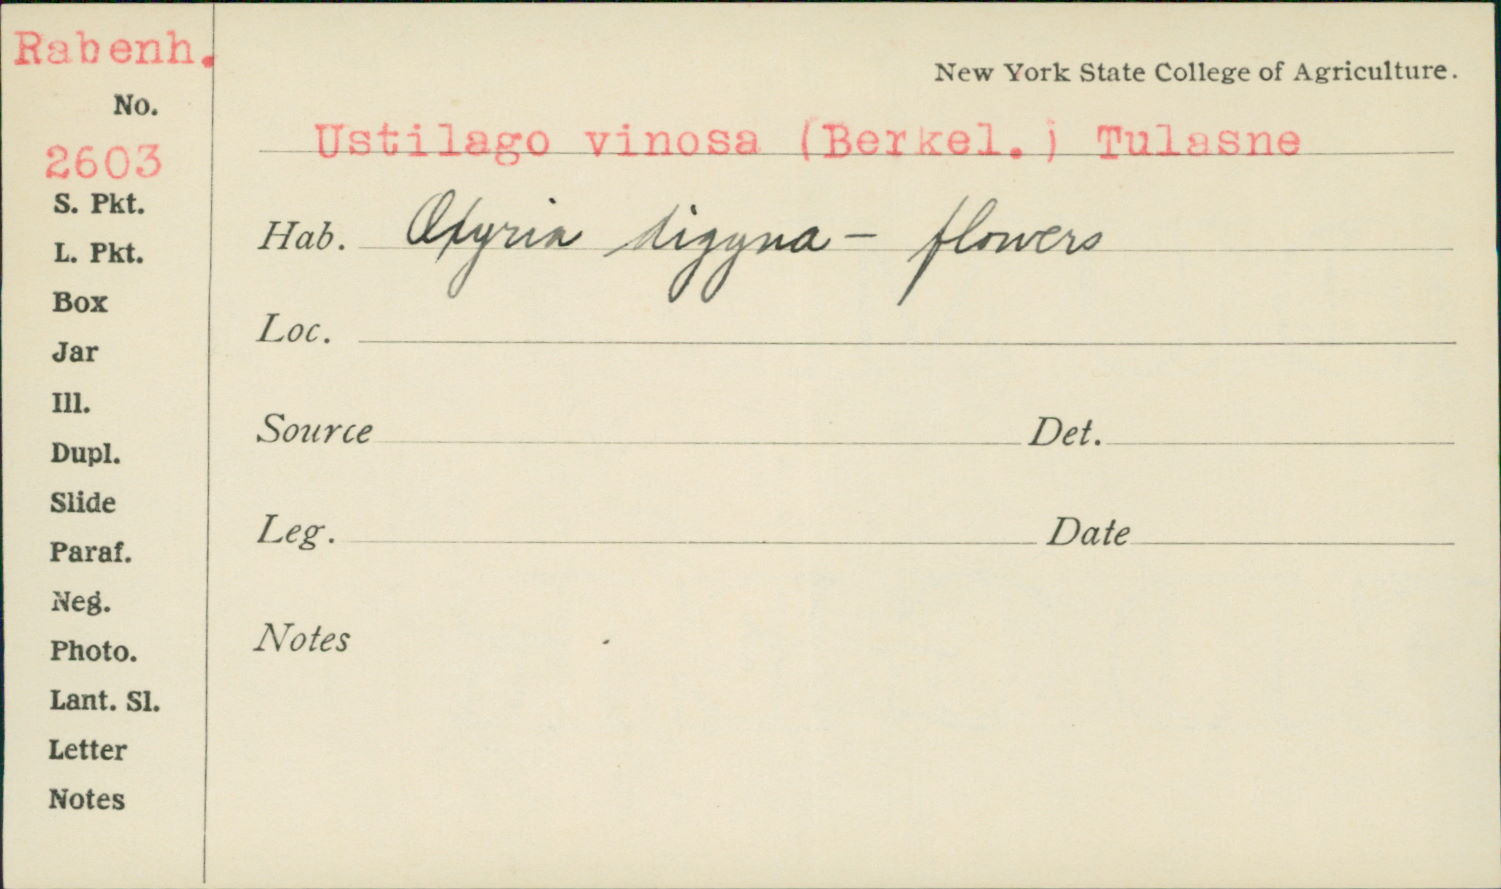 Rabenh.
No.
2603
S. Pkt.
L. Pkt.
Box
Jar
Ill.
Dupl.
Slide
Paraf.
Neg.
Photo.
Lant. Sl.
Letter
Notes
New York State College of Agriculture.
Ustilago vinosa (Berkel.) Tulasne
Hab. Oxyria digyna - flowers
Loc.
Source Det.
Leg. Date
Notes